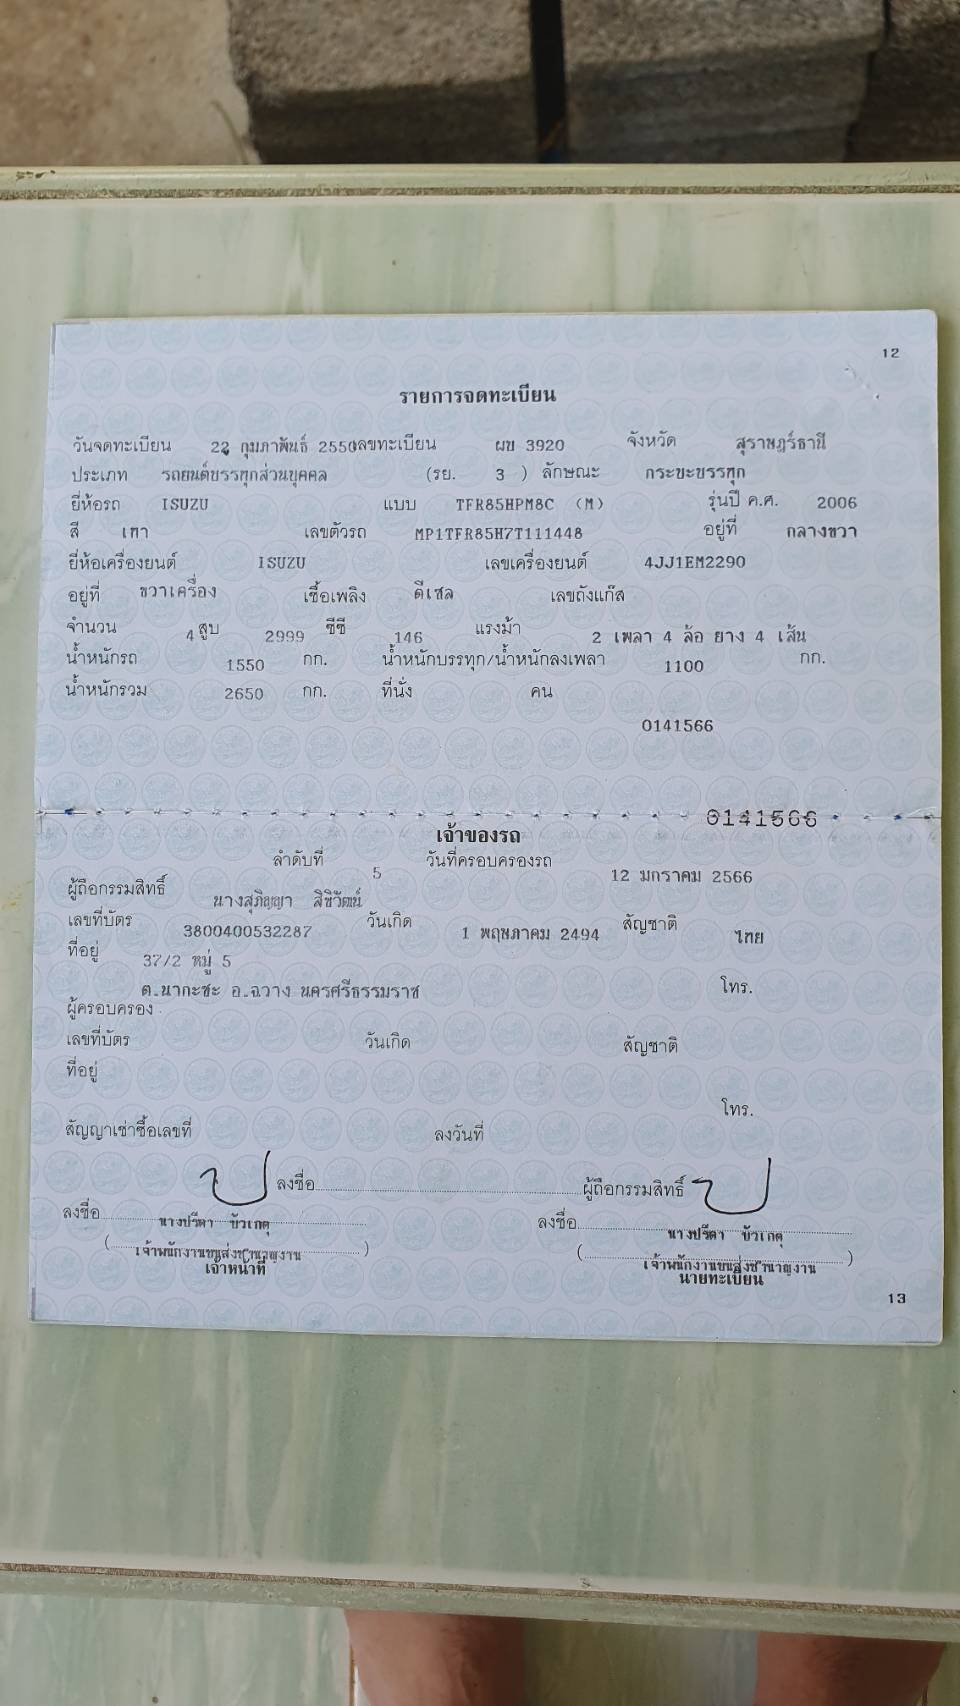 12
รายการจดทะเบียน
วันจดทะเบียน 22 กุมภาพันธ์ 2550 เลขทะเบียน ผข 3920 จังหวัด สุราษฎร์ธานี
ประเภท รถยนต์บรรทุกส่วนบุคคล (รย. 3 ) ลักษณะ กระบะบรรทุก
ยี่ห้อรถ ISUZU แบบ TFR85HPM8C (M) รุ่นปี ค.ศ. 2006
สี เทา เลขตัวรถ MP1TFR85H7T111448 อยู่ที่ กลางขวา
ยี่ห้อเครื่องยนต์ ISUZU เลขเครื่องยนต์ 4JJ1EM2290
อยู่ที่ ขวาเครื่อง เชื้อเพลิง ดีเซล เลขถังแก๊ส
จำนวน 4 สูบ 2999 ซีซี 146 แรงม้า 2 เพลา 4 ล้อ ยาง 4 เส้น
น้ำหนักรถ 1550 กก. น้ำหนักบรรทุก/น้ำหนักลงเพลา 1100 กก.
น้ำหนักรวม 2650 กก. ที่นั่ง คน
0141566
0141566
เจ้าของรถ
ลำดับที่ 5 วันที่ครอบครองรถ 12 มกราคม 2566
ผู้ถือกรรมสิทธิ์ นางสุภิญญา สิชิวัฒน์
เลขที่บัตร 3800400532287 วันเกิด 1 พฤษภาคม 2494 สัญชาติ ไทย
ที่อยู่ 37/2 หมู่ 5
ต.นากะชะ อ.ฉวาง นครศรีธรรมราช โทร.
ผู้ครอบครอง
เลขที่บัตร วันเกิด สัญชาติ
ที่อยู่
โทร.
สัญญาเช่าซื้อเลขที่ ลงวันที่
ลงชื่อ ผู้ถือกรรมสิทธิ์
ลงชื่อ นางปรีดา บัวเกตุ ลงชื่อ นางปรีดา บัวเกตุ
(เจ้าพนักงานขนส่งชำนาญงาน) (เจ้าพนักงานขนส่งชำนาญงาน)
เจ้าหน้าที่ นายทะเบียน
13